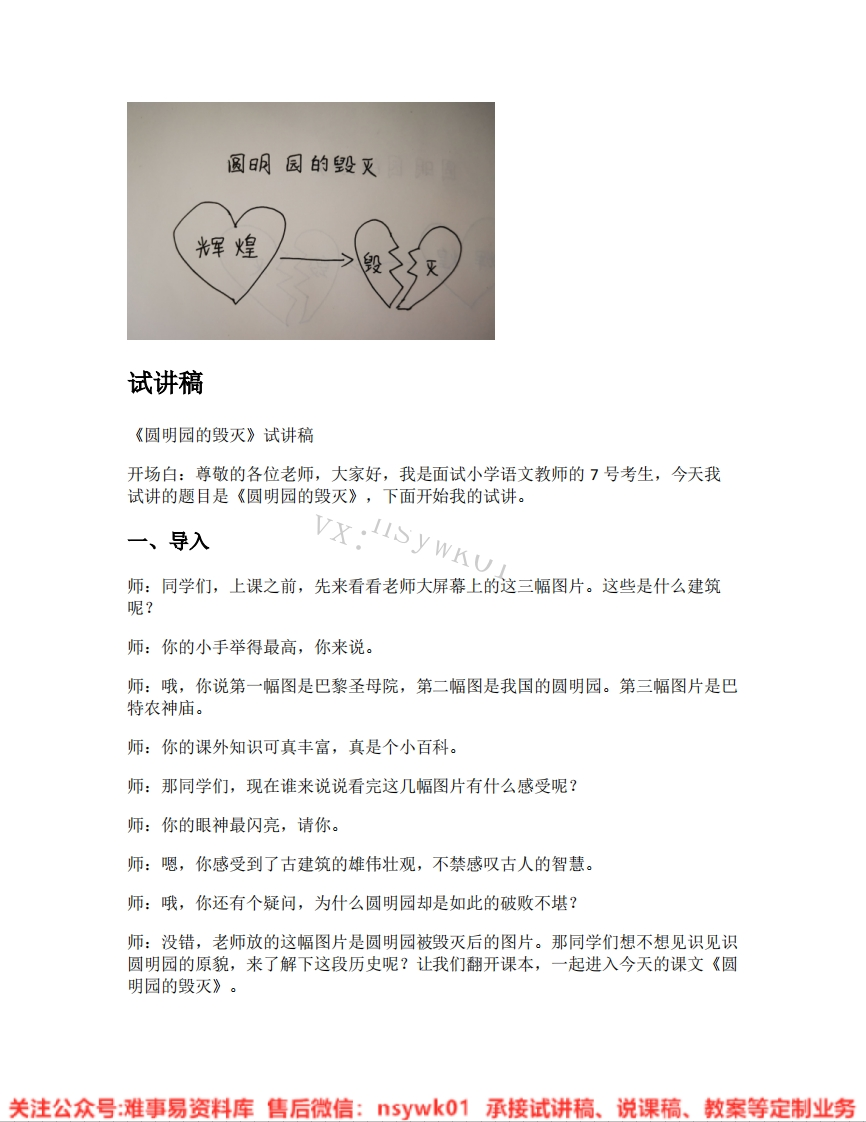 圆明园的毁灭
辉煌
毁
灭
试讲稿
《圆明园的毁灭》试讲稿
开场白：尊敬的各位老师，大家好，我是面试小学语文教师的 7 号考生，今天我
试讲的题目是《圆明园的毁灭》，下面开始我的试讲。
VX:nsywk01
一、导入
师：同学们，上课之前，先来看看老师大屏幕上的这三幅图片。这些是什么建筑
呢？
师：你的小手举得最高，你来说。
师：哦，你说第一幅图是巴黎圣母院，第二幅图是我国的圆明园。第三幅图片是巴
特农神庙。
师：你的课外知识可真丰富，真是个小百科。
师：那同学们，现在谁来说说看完这几幅图片有什么感受呢？
师：你的眼神最闪亮，请你。
师：嗯，你感受到了古建筑的雄伟壮观，不禁感叹古人的智慧。
师：哦，你还有个疑问，为什么圆明园却是如此的破败不堪？
师：没错，老师放的这幅图片是圆明园被毁灭后的图片。那同学们想不想见识见识
圆明园的原貌，来了解下这段历史呢？让我们翻开课本，一起进入今天的课文《圆
明园的毁灭》。
关注公众号:难事易资料库 售后微信：nsywk01 承接试讲稿、说课稿、教案等定制业务